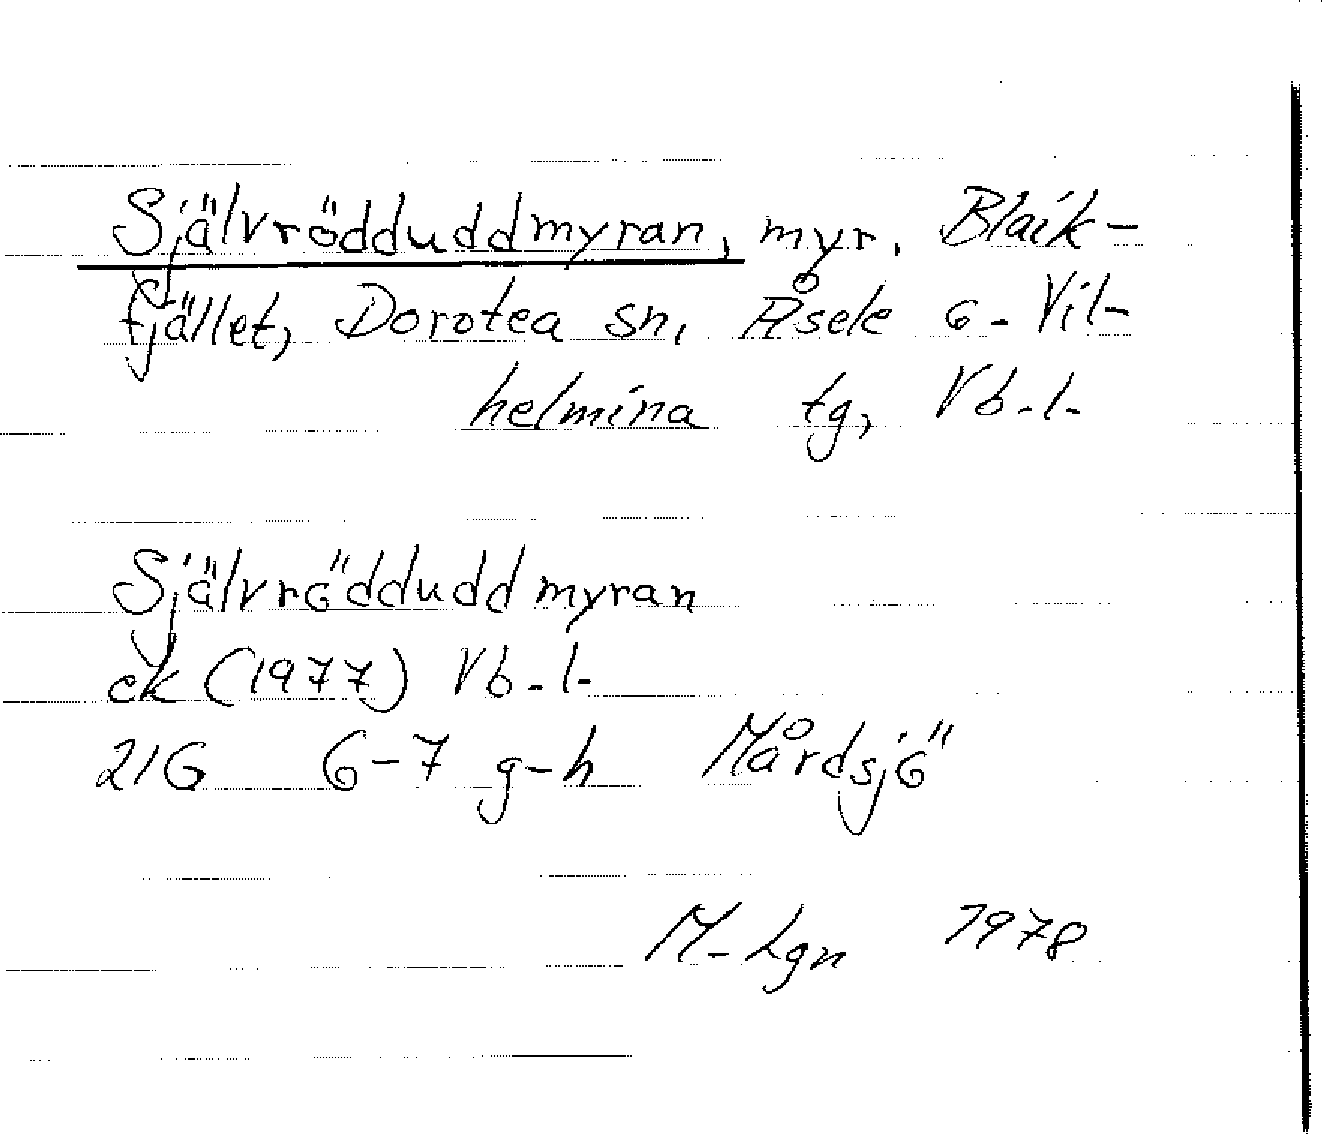 Självrödduddmyran, myr. Blaik-
fjället, Dorotea sn, Åsele o. Vil-
helmina tg, Vb. l.
Självrödduddmyran
ek (1977) Vb. l.
21G 6-7 g-h Mårdsjö
M. Lgn 1978